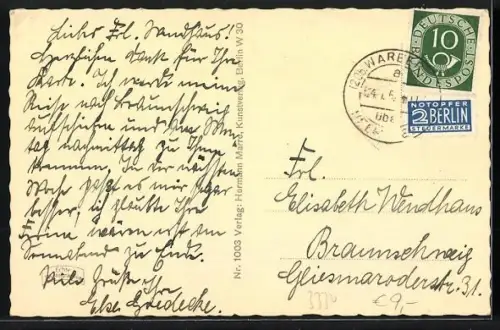 Liebes Frl. Wendhaus!
Herzlichen Dank für Ihre
Karte. Ich werde meine
Reise nach Braunschweig
aufschieben und am
nachmittag zu Ihnen
kommen. In der nächsten
Woche paßt es mir sogar
besser, ich glaubte Ihre
Ferien wären erst am
Sonnabend zu Ende.
Viele Grüße Ihre
Else Goedecke.
Nr. 1003 Verlag: Hermann Marro, Kunstverlag, Berlin W 30
DEUTSCHE
10
BUNDESPOST
NOTOPFER
2 BERLIN
STEUERMARKE
Frl.
Elisabeth Wendhaus
Braunschweig
Gliesmaroderstr. 31.
€ 9,-